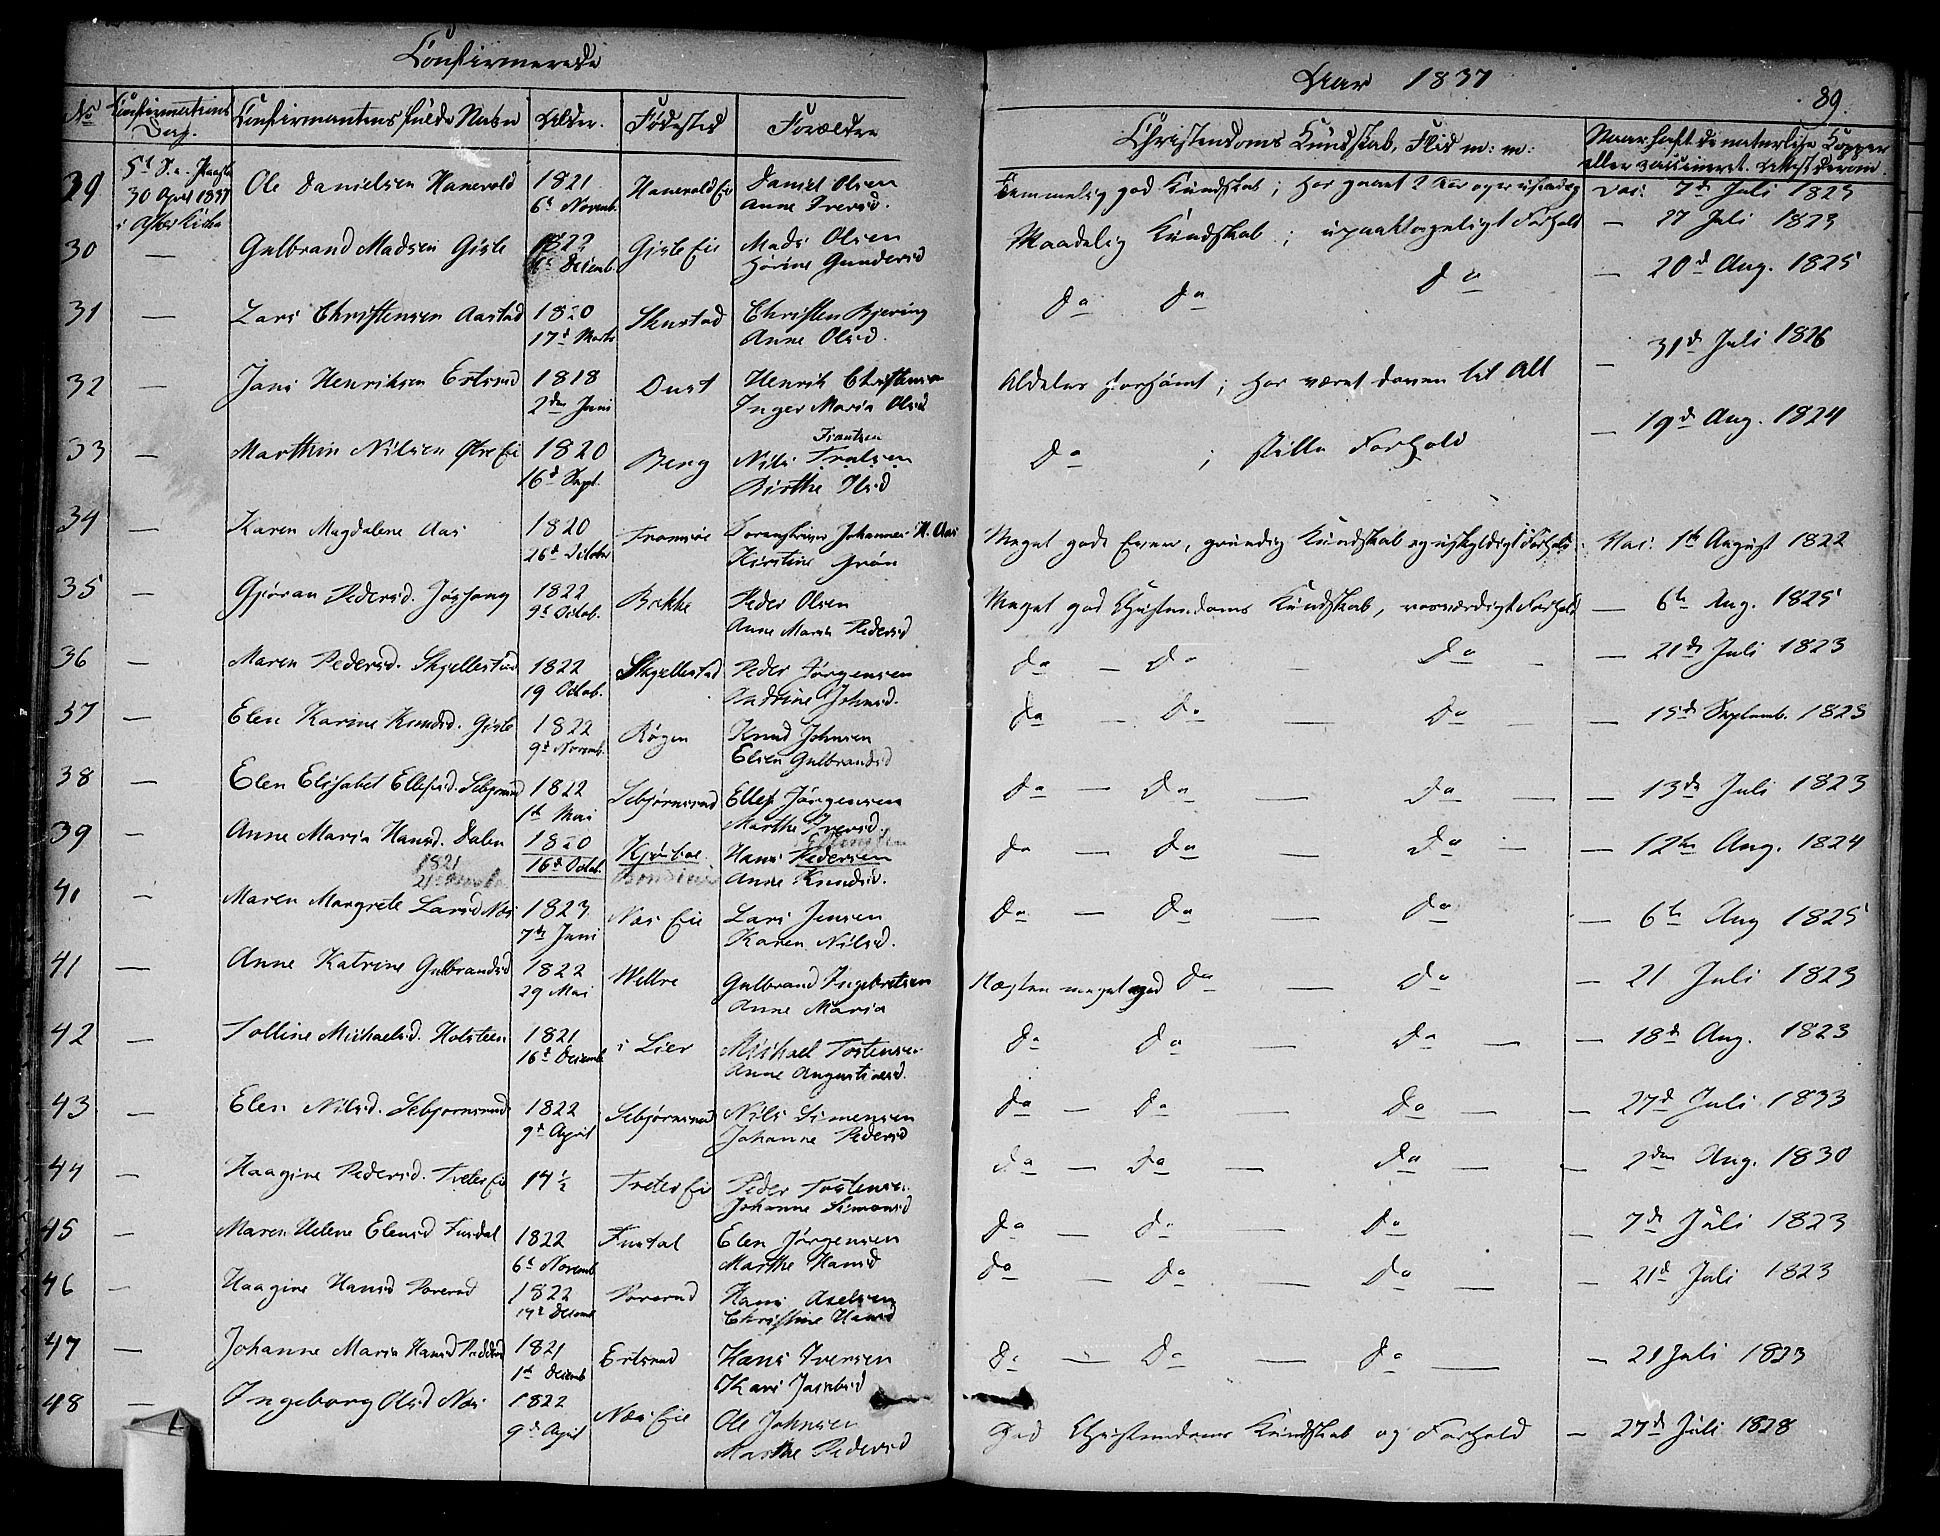 Confirmerede
Aar 1837
89.
No
Confirmations Dag.
Confirmantens fulde Navn
Alder.
Fødested
Forældre
Christendoms Kundskab, Flid m: m:
Naar haft de naturlige Kopper
eller vaccineret. Attest derom.
29 5t S. e. Paaske 30 April 1837 i Asker Kirke Ole Danielsen Hanevold 1821 6t Novemb. Hanevold Eie Daniel Olsen Anne Iversd. Temmelig god Kundskab; har gaaet 2 Aar Vac: 7d Juli 1823
30 — Gulbrand Madsen Gisle 1822 Decemb. Gisle Eie Mads Olsen Gundersd Maadelig Kundskab; upaaklageligt Forhold — 27 Juli 1823
31 — Lars Christensen Aastad 1820 17d Marts Skustad Christen Bjering Anne Olsd. do do do — 20d Aug. 1825
32 — Jens Henriksen Estsrud 1818 2den Juni Dust Henrik Christensen Inger Maria Olsd Aldeles forsømt; har været doven til Alt — 31d Juli 1826
33 — Marthin Nilsen Øvre Eie 1820 16d Sept. Berg Frantsen Nils Birthe Olsd do ; stille Forhold — 19d Aug. 1824
34 — Karen Magdalene Aas 1820 26d October Tromsøe Sorenskriver Johannes H. Aas Kirstine Grøn Meget gode Evner, grundig Kundskab og uskyldigt Forhold. Vac: 1th August 1822
35 — Gjøran Pedersd. Jøssong 1822 9d Octob. Bekke Peder Olsen Anne Maria Pedersd Meget god Christendoms Kundskab, roesværdigt Forhold — 6th Aug. 1825
36 — Maren Pedersd. Skjellestad 1822 19 Octob. Skjellestad Peder Jørgensen Andrine Johnsd. do — do — do — — 21de Juli 1823
37 — Elen Karine Knudsd. Gisle 1822 9d Novemb. Røgen Knud Johnsen Elsen Gulbrandsd do — do — do — — 15d Septemb. 1823
38 — Elen Elisabet Ellefsd. Sebjørnsrud 1822 1th Mai Sebjørnsrud Ellef Jørgensen Marthe Iversd. do — do — do — — 13de Juli 1823
39 — Anne Maria Hansd. Dalen 1820 16d Octob. 1821 Kjørboe Hans Pedersen Anne Knudsd. do — do — do — — 12te Aug. 1824
41 — Maren Margrete Larsd Næs 1823 7de Juni Næs Eie Lars Jensen Karen Nilsd. do — do — do — 6th Aug 1825
41 — Anne Katrine Gulbrandsd 1822 29 Mai Wettre Gulbrand Ingebretsen Anne Maria Næsten meget god do — do — 21 Juli 1823
42 — Tolline Michaelsd. Holsteen 1821 16d Decemb i Lier Michael Tostensen Anne Augustinesd. do do — do — — 18d Aug. 1823
43 — Elen Nilsd. Sebjornsrud 1822 9d April Sebjørnsrud Nils Simensen Johanne Pedersd do — do — do — — 27d Juli 1833
44 — Haagine Pedersd. Treter Eie 14½ Treter Eie Peder Tostensen Johanne Simensd do — do — do — — 2den Aug. 1830
45 — Maren Helene Elensd Fusdal 1822 6te Novemb Fusdal Elen Jørgensen Marthe Hansd do — do — do — 7de Juli 1823
46 — Haagine Hansd Poverud 1822 14d Decemb Poverud Hans Axelsen Christine Hansd do — do — do — — 21d Juli 1823
47 — Johanne Maria Hansd 1821 1th Decemb Estsrud Hans Iversen Kari Jacobsd do — do — do — — 21 Juli 1823
48 — Ingeborg Olsd Næs 1822 9d April Næs Eie Ole Johnsen Marthe Pedersd God Christendoms Kundskab og Forhold — 27d Juli 1828